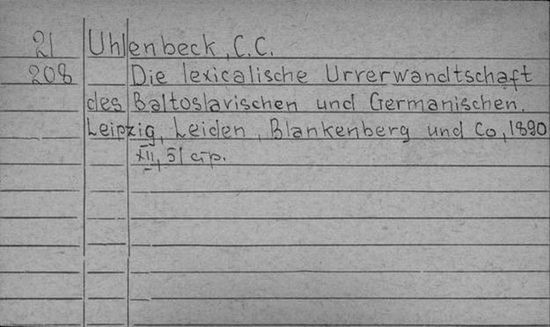 21 Uhlenbeck, C.C.
208 Die lexicalische Urverwandtschaft
des Baltoslavischen und Germanischen.
Leipzig, Leiden, Blankenberg und Co, 1890
XII, 51 стр.